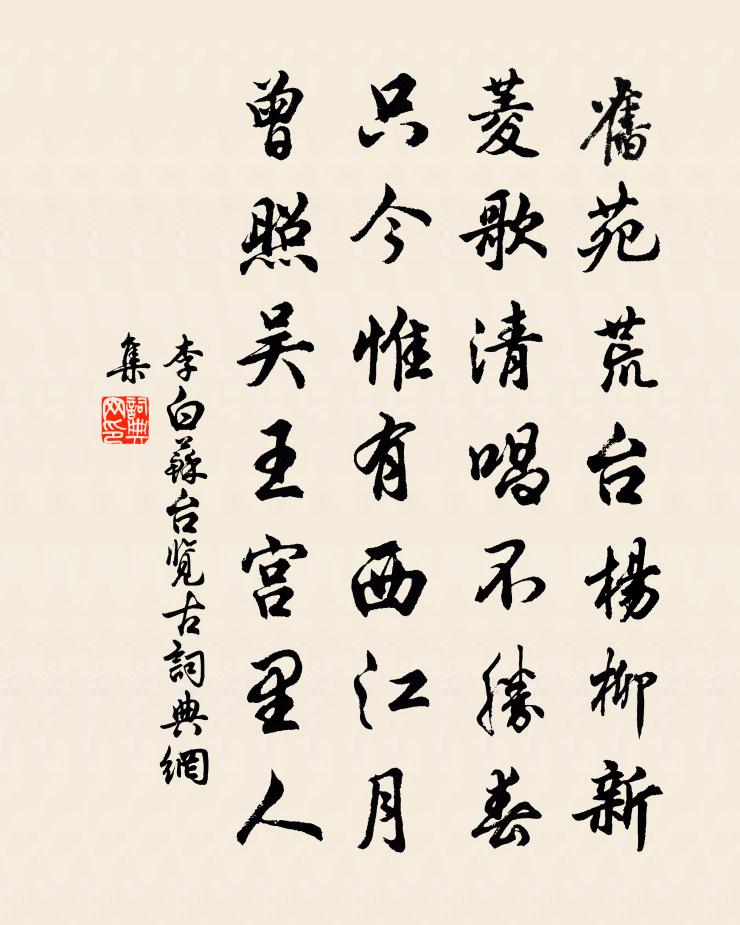 舊苑荒台楊柳新
菱歌清唱不勝春
只今惟有西江月
曾照吴王宫里人
李白蘇台览古詞典網
集
詞典
网印